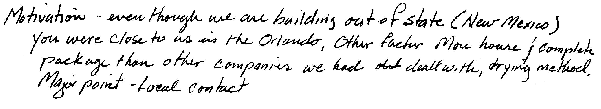 Motivation - even though we are building out of state (New Mexico)
you were close to us in the Orlando, Other factor More house & complete
package than other companies we had dealt with, drying method.
Major point - Local contact